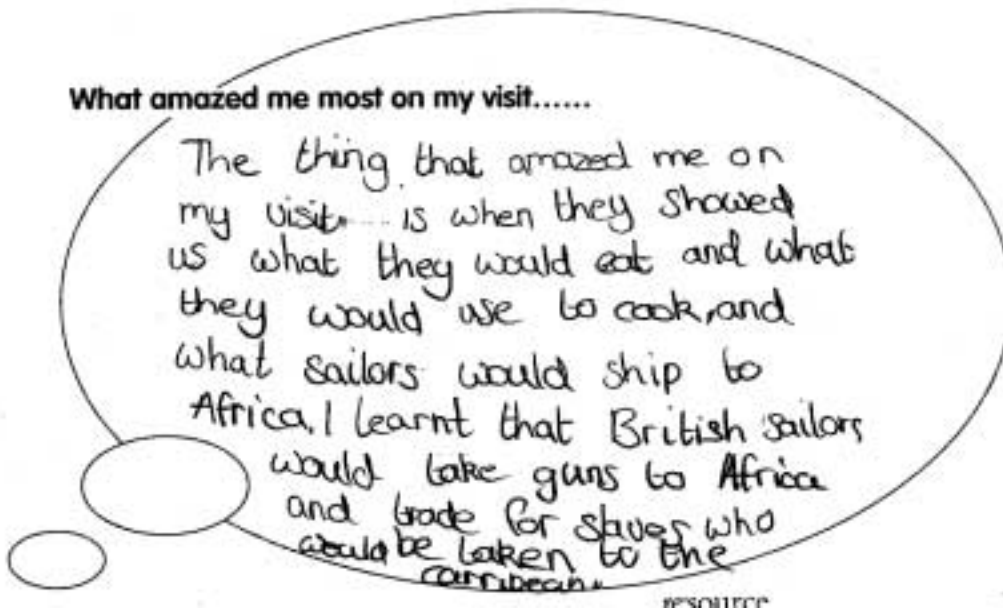 What amazed me most on my visit......
The thing that amazed me on
my visit is when they showed
us what they would eat and what
they would use to cook, and
what sailors would ship to
Africa. I learnt that British sailors
would take guns to Africa
and trade for slaves who
would be taken to the
carribean.
resource